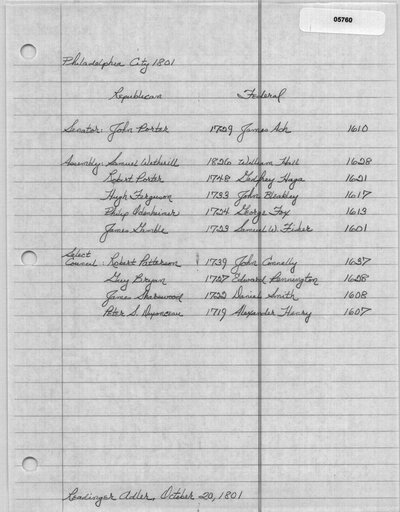 05760
Philadelphia City 1801
Republican Federal
Senator: John Porter 1729 James Ash 1610
Assembly: Samuel Wetherill 1826 William Hall 1628
Robert Porter 1748 Godfrey Haga 1621
Hugh Ferguson 1733 John Bleakley 1617
Philip Odenheimer 1724 George Fox 1613
James Gamble 1723 Samuel W. Fisher 1601
Select
Council: Robert Patterson 1739 John Connelly 1637
Guy Bryan 1727 Edward Pennington 1628
James Sharswood 1722 Daniel Smith 1608
Peter S. Duponceau 1719 Alexander Henry 1607
Readinger Adler, October 20, 1801